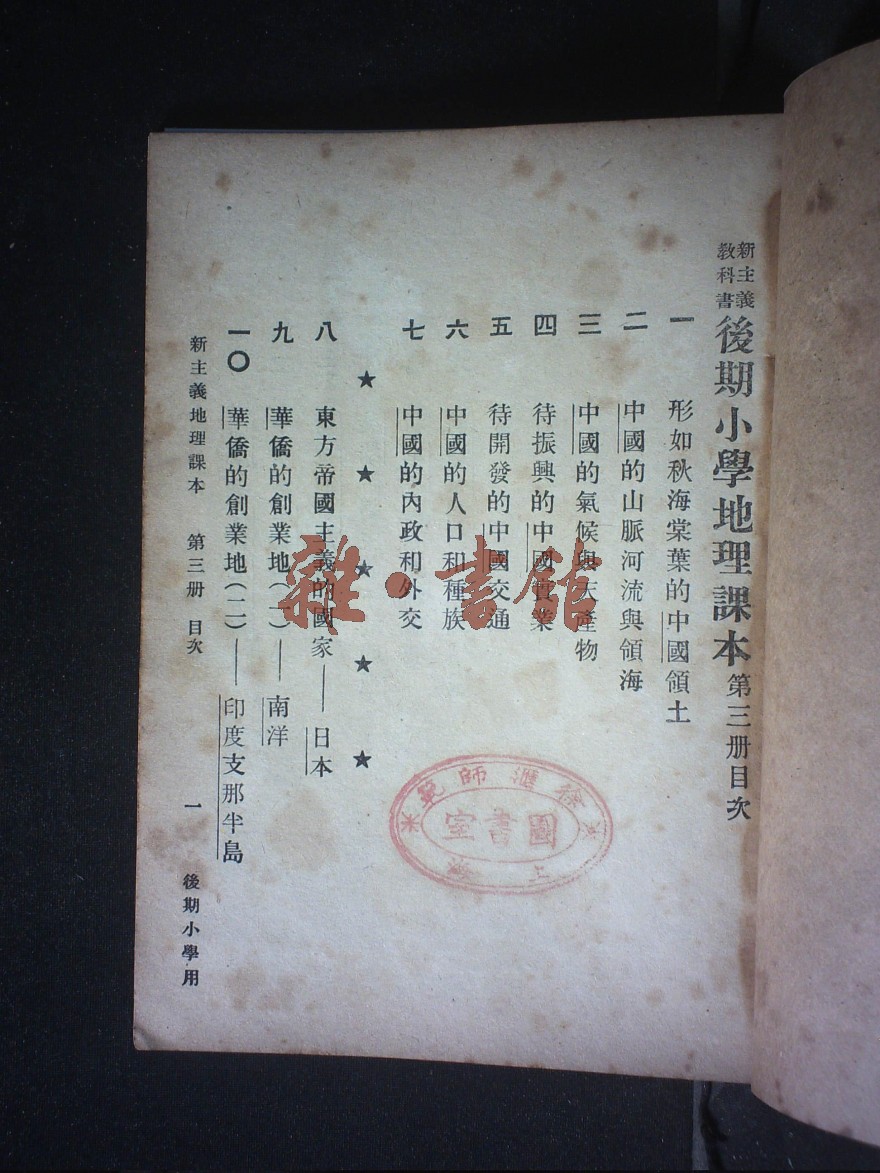 新主義教科書 後期小學地理課本第三册目次
一 形如秋海棠葉的中國領土
二 中國的山脈河流與領海
三 中國的氣候與天產物
四 待振興的中國實業
五 待開發的中國交通
六 中國的人口和種族
七 中國的內政和外交
★ ★ ★ ★ ★
八 東方帝國主義的國家——日本
九 華僑的創業地(一)——南洋
一〇 華僑的創業地(二)——印度支那半島
新主義地理課本 第三册 目次 一 後期小學用
徐滙師範
圖書室
上海
雜·書館